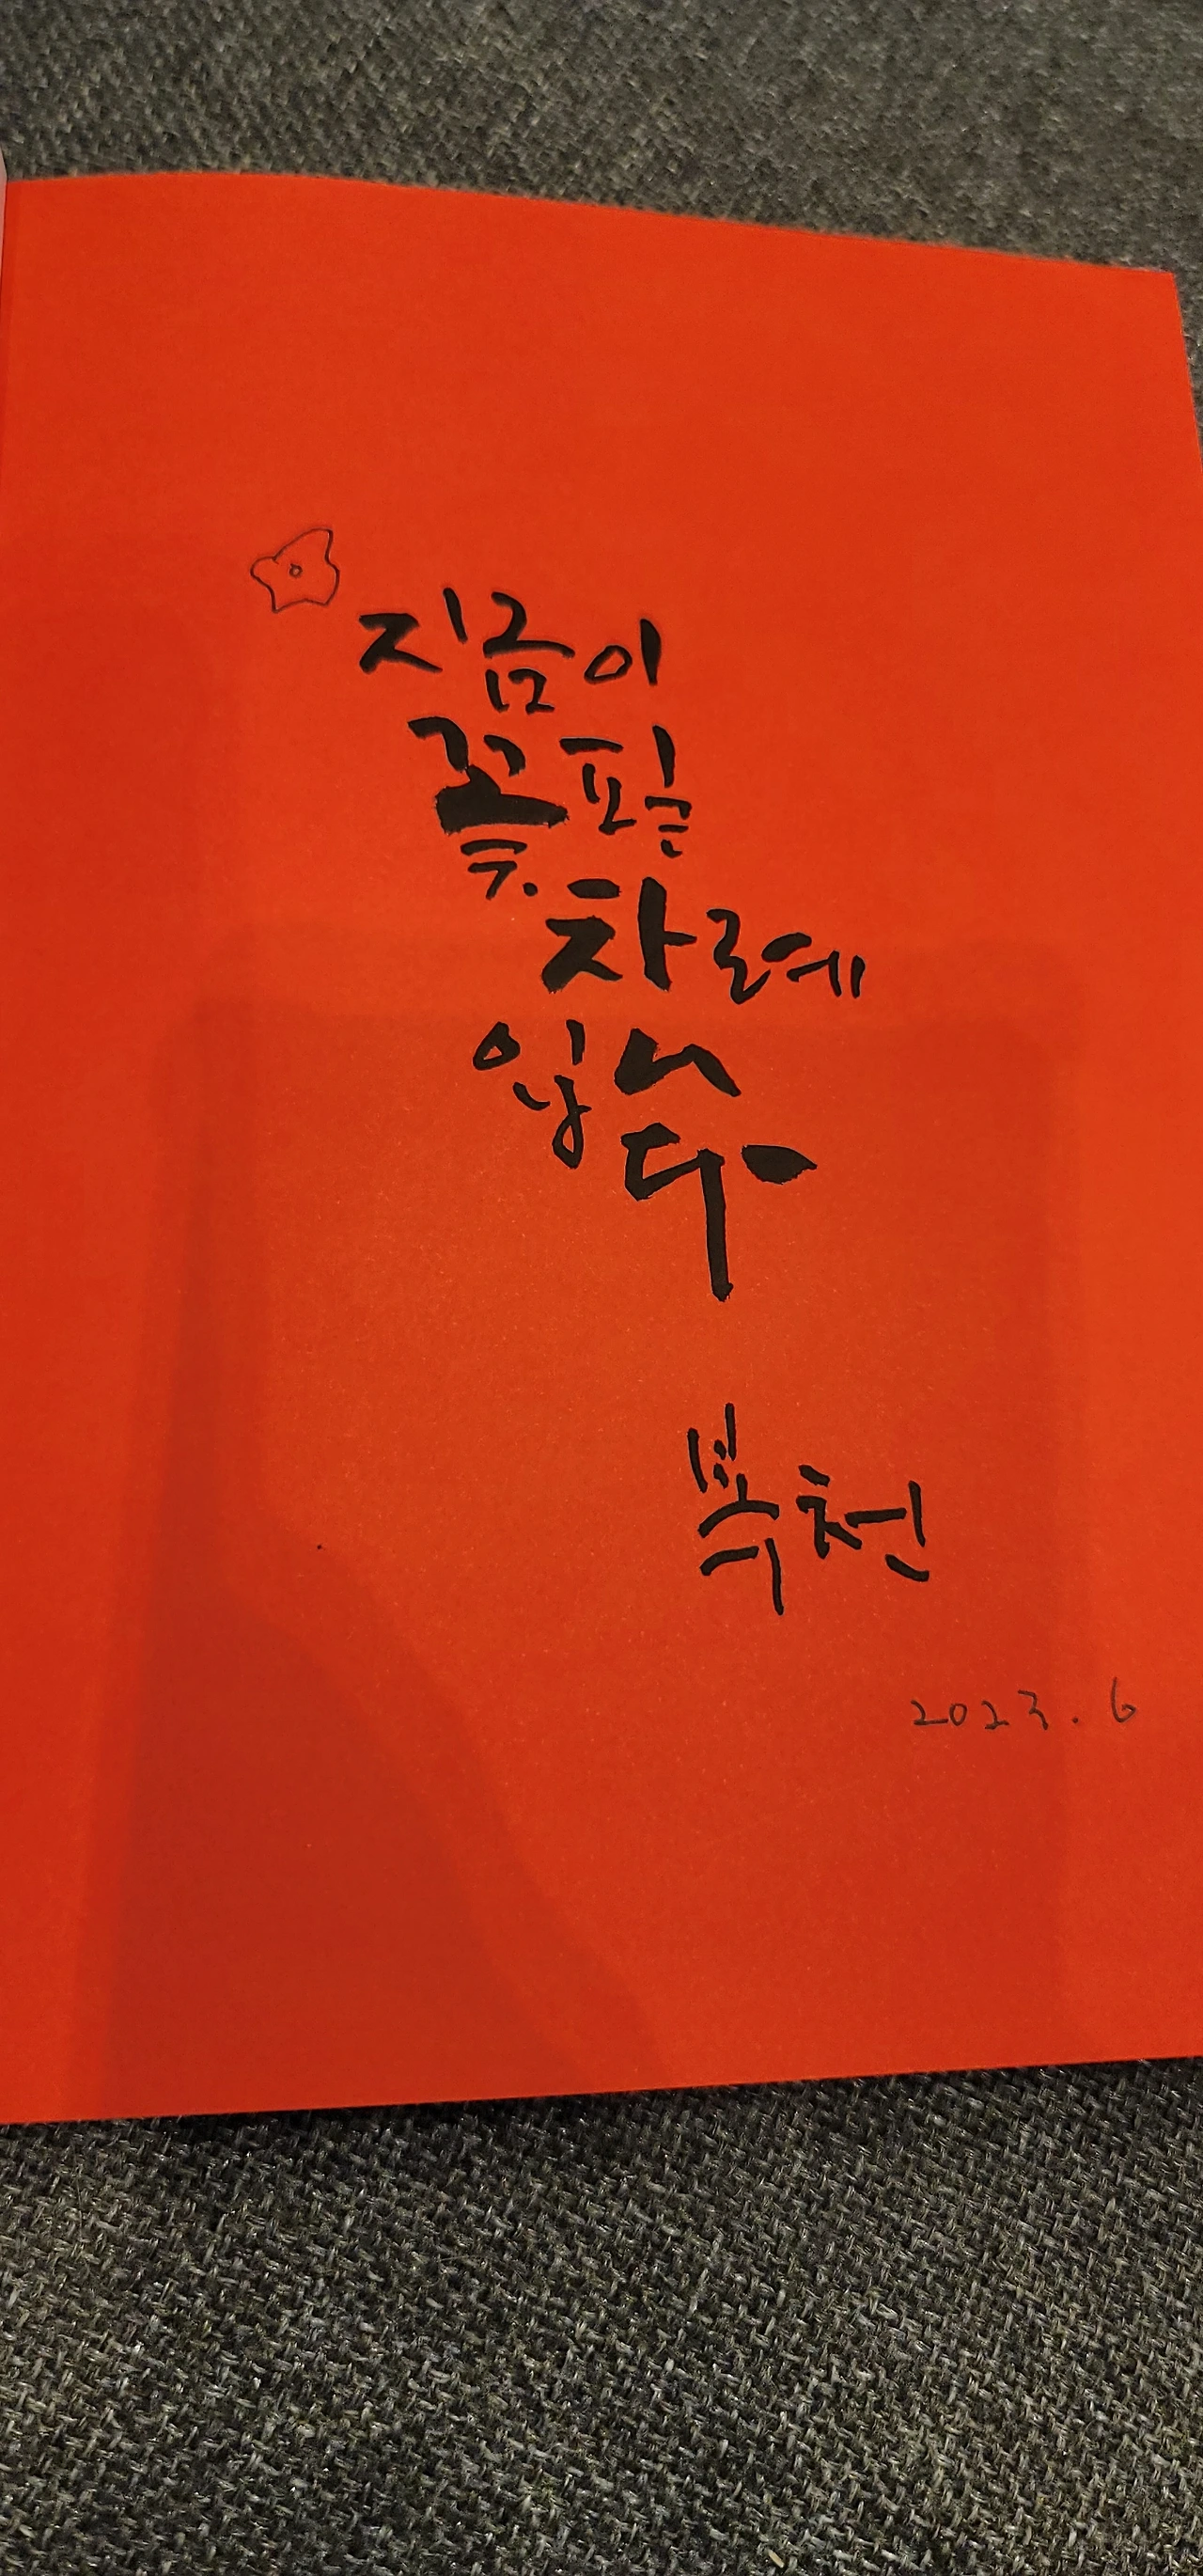 지금이
꽃필
차례
입니
다
복천
2023. 6